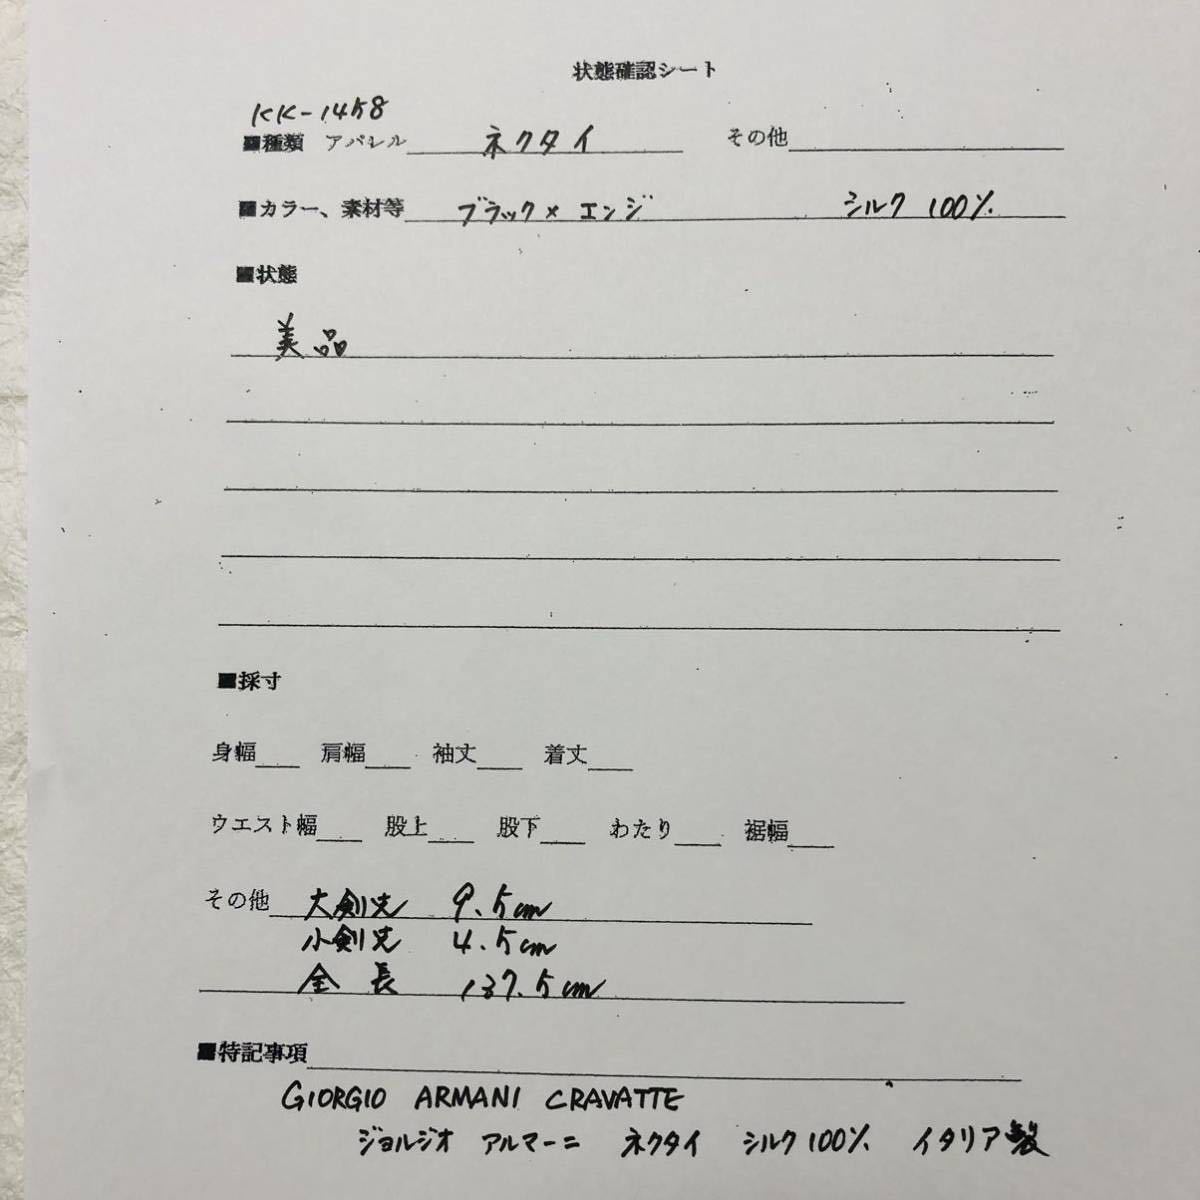 状態確認シート
KK-1458
■種類 アパレル ネクタイ その他
■カラー、素材等 ブラック×エンジ シルク 100%
■状態
美品
■採寸
身幅 肩幅 袖丈 着丈
ウエスト幅 股上 股下 わたり 裾幅
その他 大剣先 9.5cm
小剣先 4.5cm
全長 137.5cm
■特記事項
GIORGIO ARMANI CRAVATTE
ジョルジオ アルマーニ ネクタイ シルク100% イタリア製